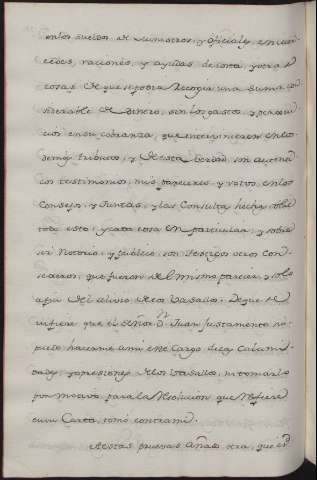 en los sueldos de Ministros, y oficiales, en mer
cedes, raciones, y ayudas de costa, y otras
cosas de que se podra Recogèr una Suma con
siderable de dinero, sin los gastos, y
en su cobranza, que intervinieron en los
demas tributos, y de esta verdad, son
los testimonios, mis pareceres, y votos en los
Consejos, y Juntas, y las Consultas hechas sobre
todo esto, y cada cosa en particular, y sobre
ser Notorio, y público, son testigos otros Con
sejeros, que fueron del mismo parecer, y solo
a fin del alivio de los Vasallos. De que se
infiere que el Señor Dn. Juan Justamente no
pudo hacerme a mi este Cargo de las Calami
dades, y opresiones de los Vasallos, ni tomarlo
por motivo para la Resolucion, que Refiere
en su Carta, tomó contra mi.
A estas pruebas añado otra, que es